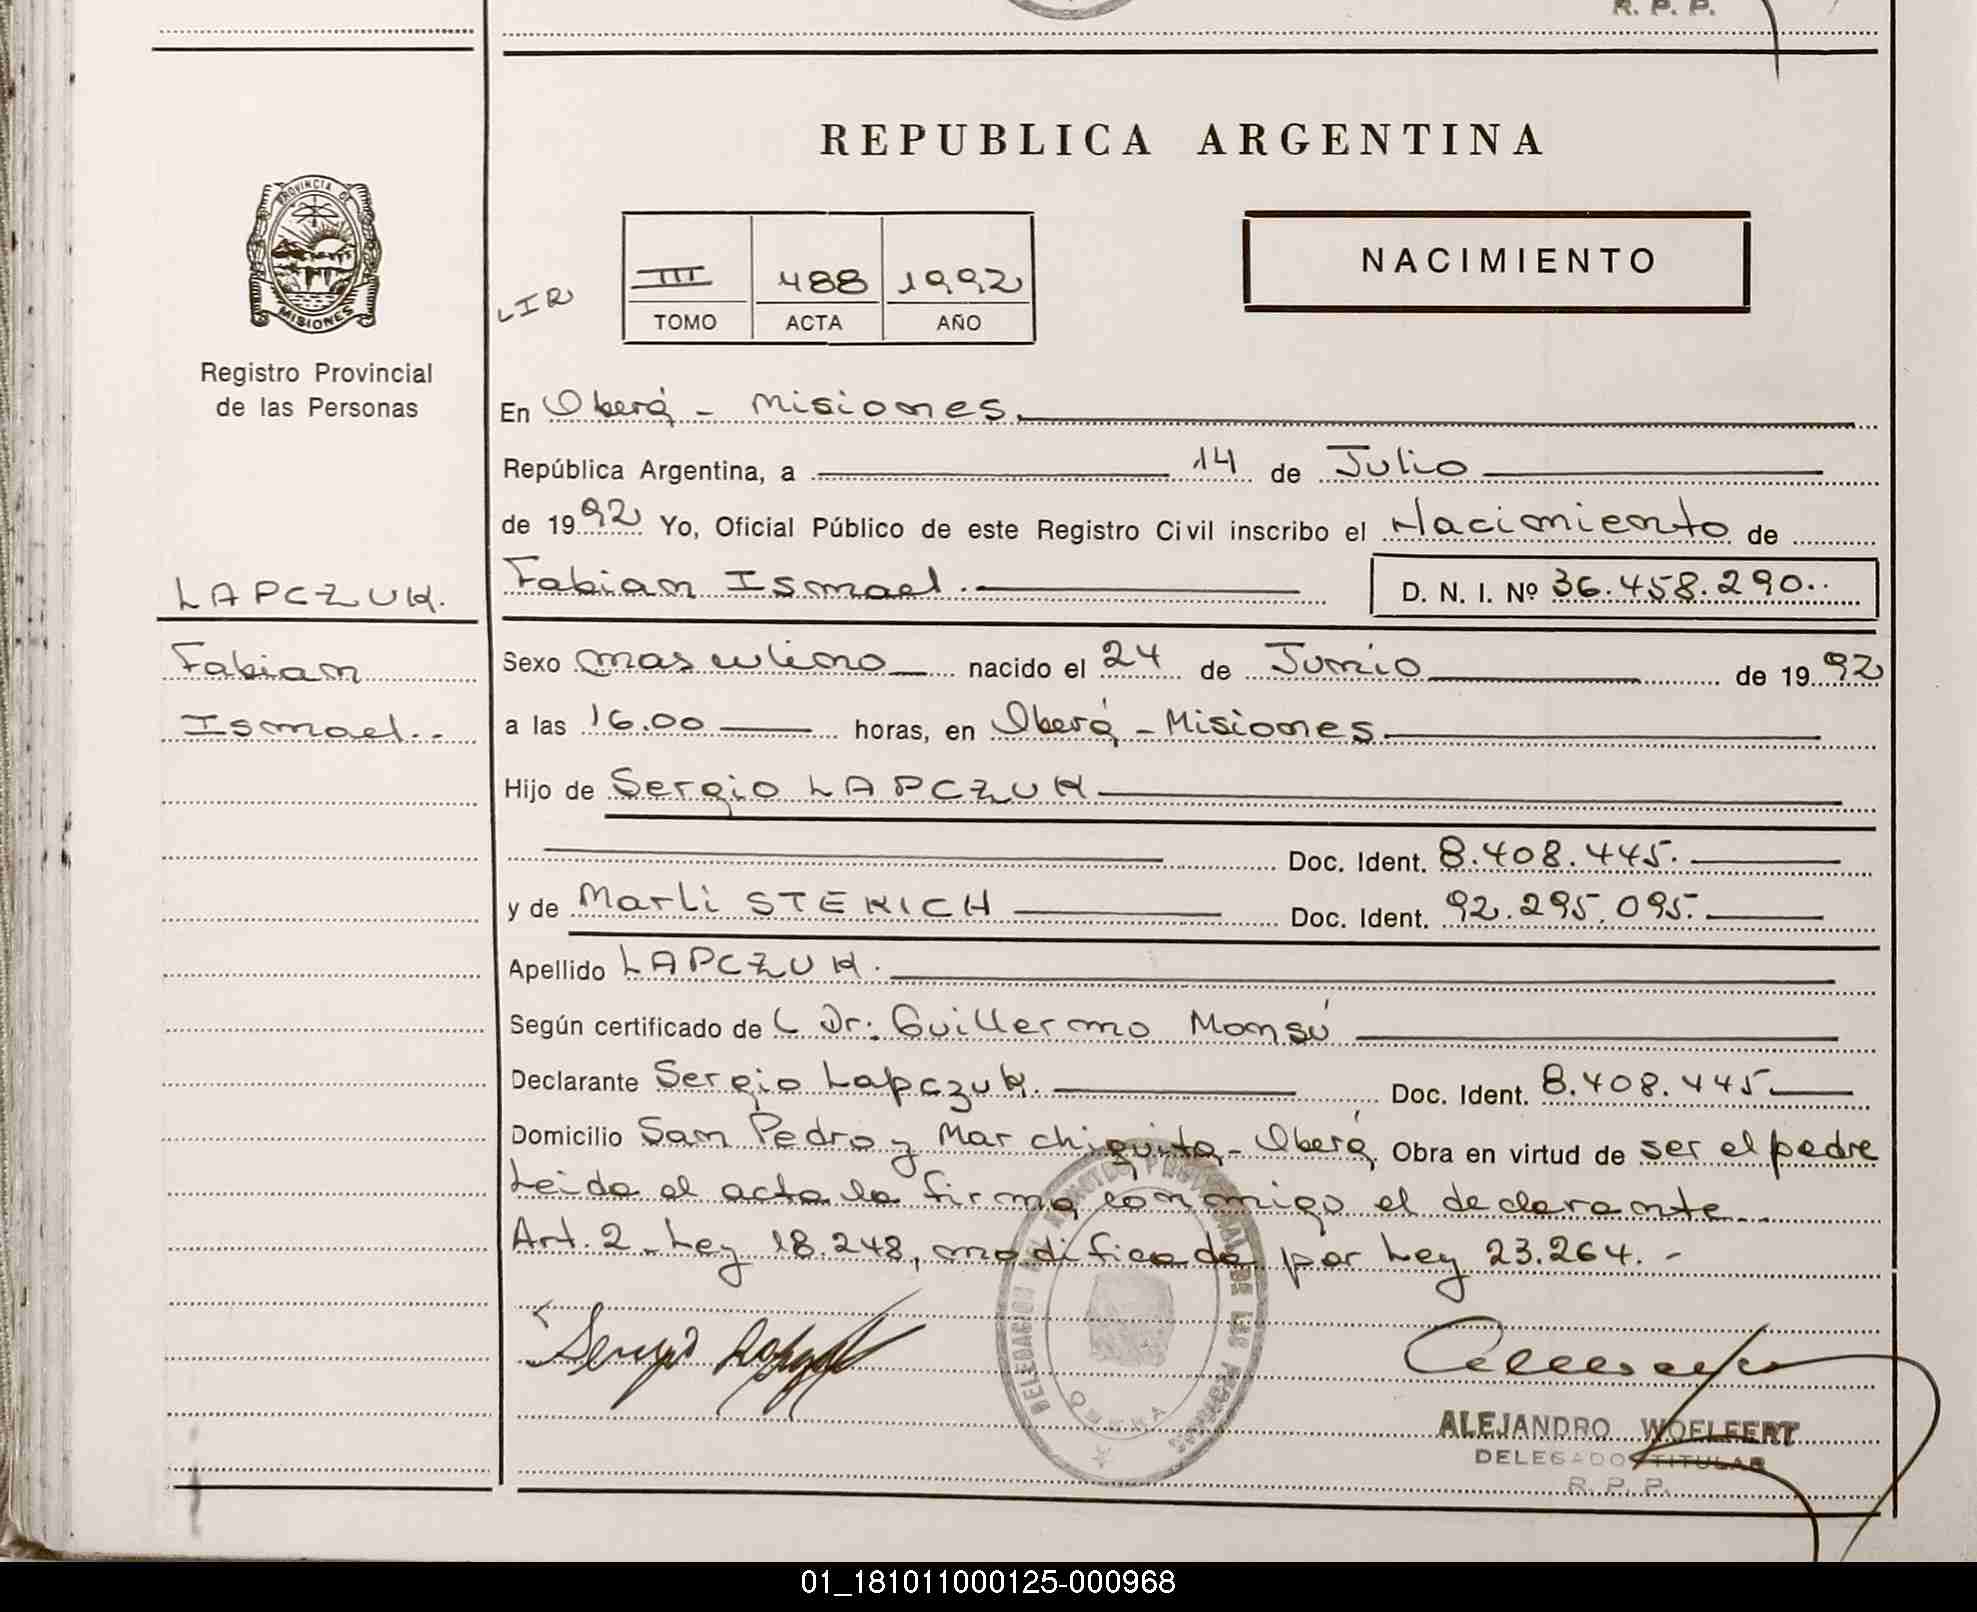 R. P. P.
REPUBLICA ARGENTINA
PROVINCIA DE
MISIONES
Registro Provincial
de las Personas
LIR
III 488 1992
TOMO ACTA AÑO
NACIMIENTO
En Oberá - Misiones.
República Argentina, a 14 de Julio
de 1992 Yo, Oficial Público de este Registro Civil inscribo el Nacimiento de
LAPCZUK.
Fabian Ismael. D. N. I. Nº 36.458.290..
Fabian
Sexo masculino nacido el 24 de Junio de 1992
Ismael..
a las 16.00 horas, en Oberá - Misiones.
Hijo de Sergio LAPCZUK
Doc. Ident. 8.408.445.
y de Marli STEKICH Doc. Ident. 92.295.095.
Apellido LAPCZUK.
Según certificado de L Dr: Guillermo Monsú
Declarante Sergio Lapczuk. Doc. Ident. 8.408.445
Domicilio San Pedro y Mar chiquita - Oberá, Obra en virtud de ser el padre
Leida el acta la firma conmigo el declarante..
Art. 2 - Ley 18.248, modificada por Ley 23.264. -
Sergio
DELEGACION DEL REGISTRO PROVINCIAL DE LAS PERSONAS
OBERA
ALEJANDRO WOELFERT
DELEGADO TITULAR
R. P. P.
01_181011000125-000968